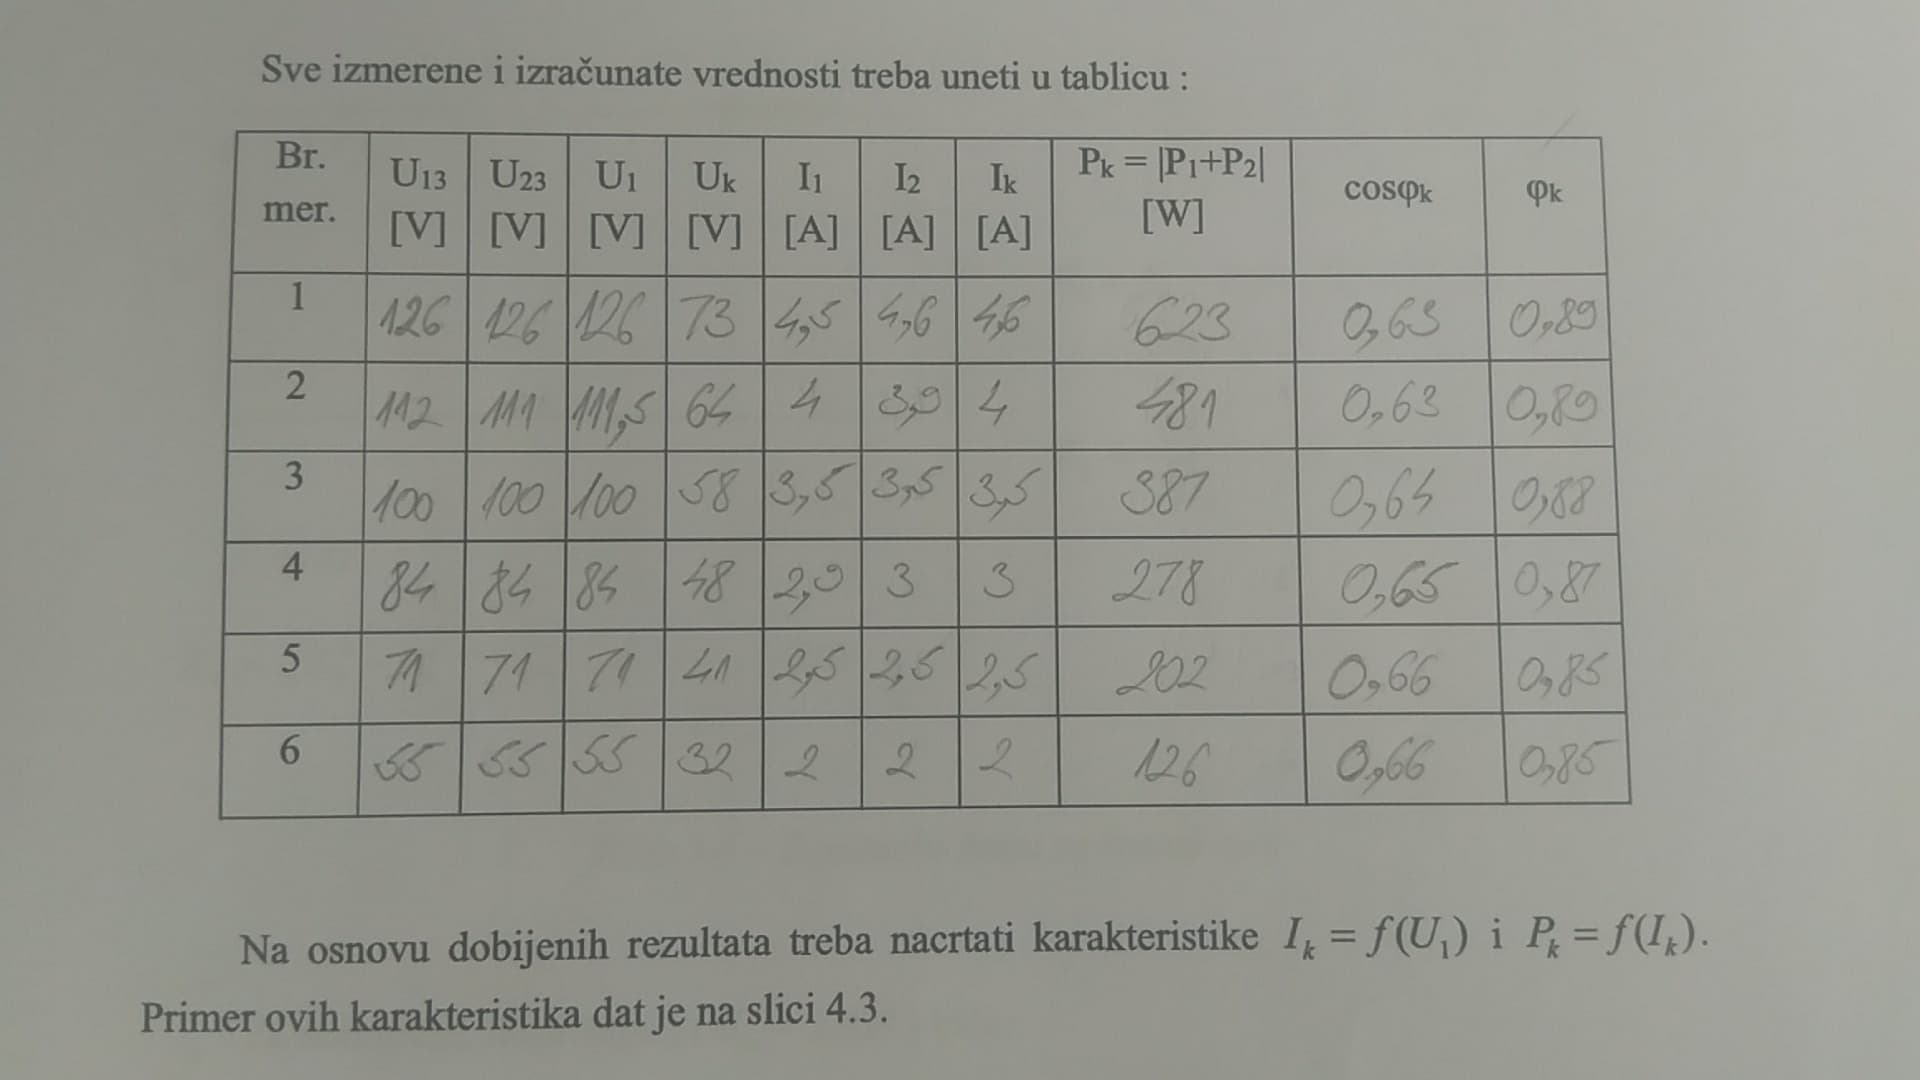 Sve izmerene i izračunate vrednosti treba uneti u tablicu :
Br. mer. U13 [V] U23 [V] U1 [V] Uk [V] I1 [A] I2 [A] Ik [A] Pk = |P1+P2| [W] cosφk φk
1 126 126 126 73 4,5 4,6 4,6 623 0,63 0,89
2 112 111 111,5 64 4 3,9 4 481 0,63 0,89
3 100 100 100 58 3,5 3,5 3,5 387 0,64 0,88
4 84 84 84 48 2,9 3 3 278 0,65 0,87
5 71 71 71 41 2,5 2,5 2,5 202 0,66 0,85
6 55 55 55 32 2 2 2 126 0,66 0,85
Na osnovu dobijenih rezultata treba nacrtati karakteristike Ik = f(U1) i Pk = f(Ik).
Primer ovih karakteristika dat je na slici 4.3.